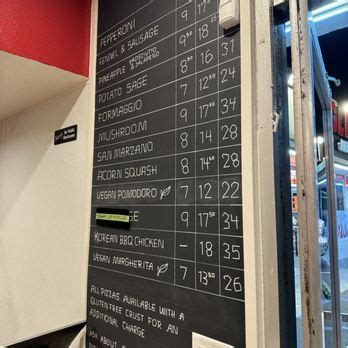 PEPPERONI
FENNEL & SAUSAGE 9 17
PINEAPPLE PROSCIUTTO & JALAPEÑO 9 50 18
POTATO SAGE 8 50 16 31
FORMAGGIO 7 12 24
MUSHROOM 9 17 50 34
SAN MARZANO 8 14 28
ACORN SQUASH 8 14 50 28
VEGAN POMODORO 7 12 22
GE 9 17 50 34
KOREAN BBQ CHICKEN - 18 35
VEGAN MARGHERITA 7 13 50 26
ALL PIZZAS AVAILABLE WITH A
GLUTEN FREE CRUST FOR AN
ADDITIONAL CHARGE
ASK ABOUT